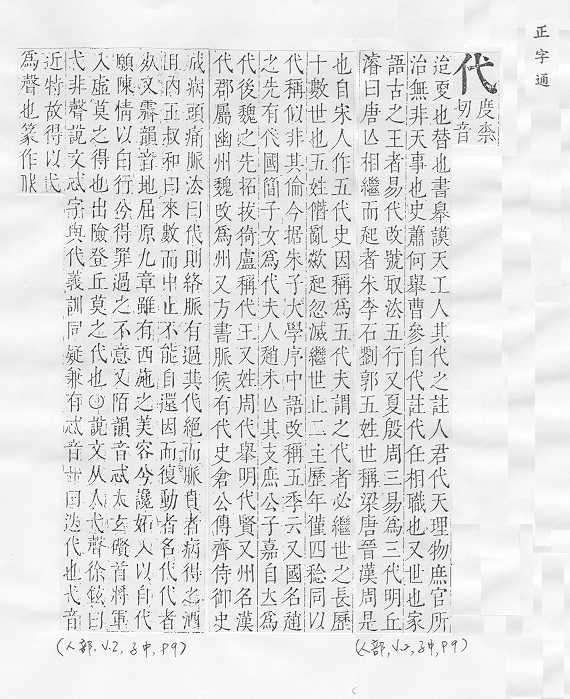 正字通
代
度柰
切音
迨更也替也書皋謨天工人其代之註人君代天理物庶官所
治無非天事也史蕭何舉曹參自代註代任相職也又世也家
語古之王者易代改號取法五行又夏殷周三易為三代明丘
濬曰唐亾相繼而起者朱李石劉郭五姓世稱梁唐晉漢周是
也自宋人作五代史因稱為五代夫謂之代者必繼世之長歷
十數世也五姓僭亂欻起忽滅繼世止二主歷年僅四稔同以
代稱似非其倫今据朱子大學序中語改稱五季云又國名趙
之先有代國簡子女為代夫人趙未亾其支庶公子嘉自立為
代後魏之先拓拔猗盧稱代王又姓周代舉明代賢又州名漢
代郡屬幽州魏改為州又方書脈候有代史倉公傳齊侍御史
成病頭痛脈法曰代則絡脈有過其代絕而脈賁者病得之酒
且內王叔和曰來數而中止不能自還因而復動者名代代者
又霽韻音地屈原九章雖有西施之美容兮讒妬入以自代
願陳情以白行兮得罪過之不意又陌韻音忒太玄礥首將軍
入虛莫之得也出險登丘莫之代也○說文从人弋聲徐鉉曰
弋非聲說文忒字與代義訓同疑兼有忒音迭代也弋音
近特故得以弋
為聲也篆作
(人部, V.2, 子中, P9)
(人部, V.2, 子中, P9)